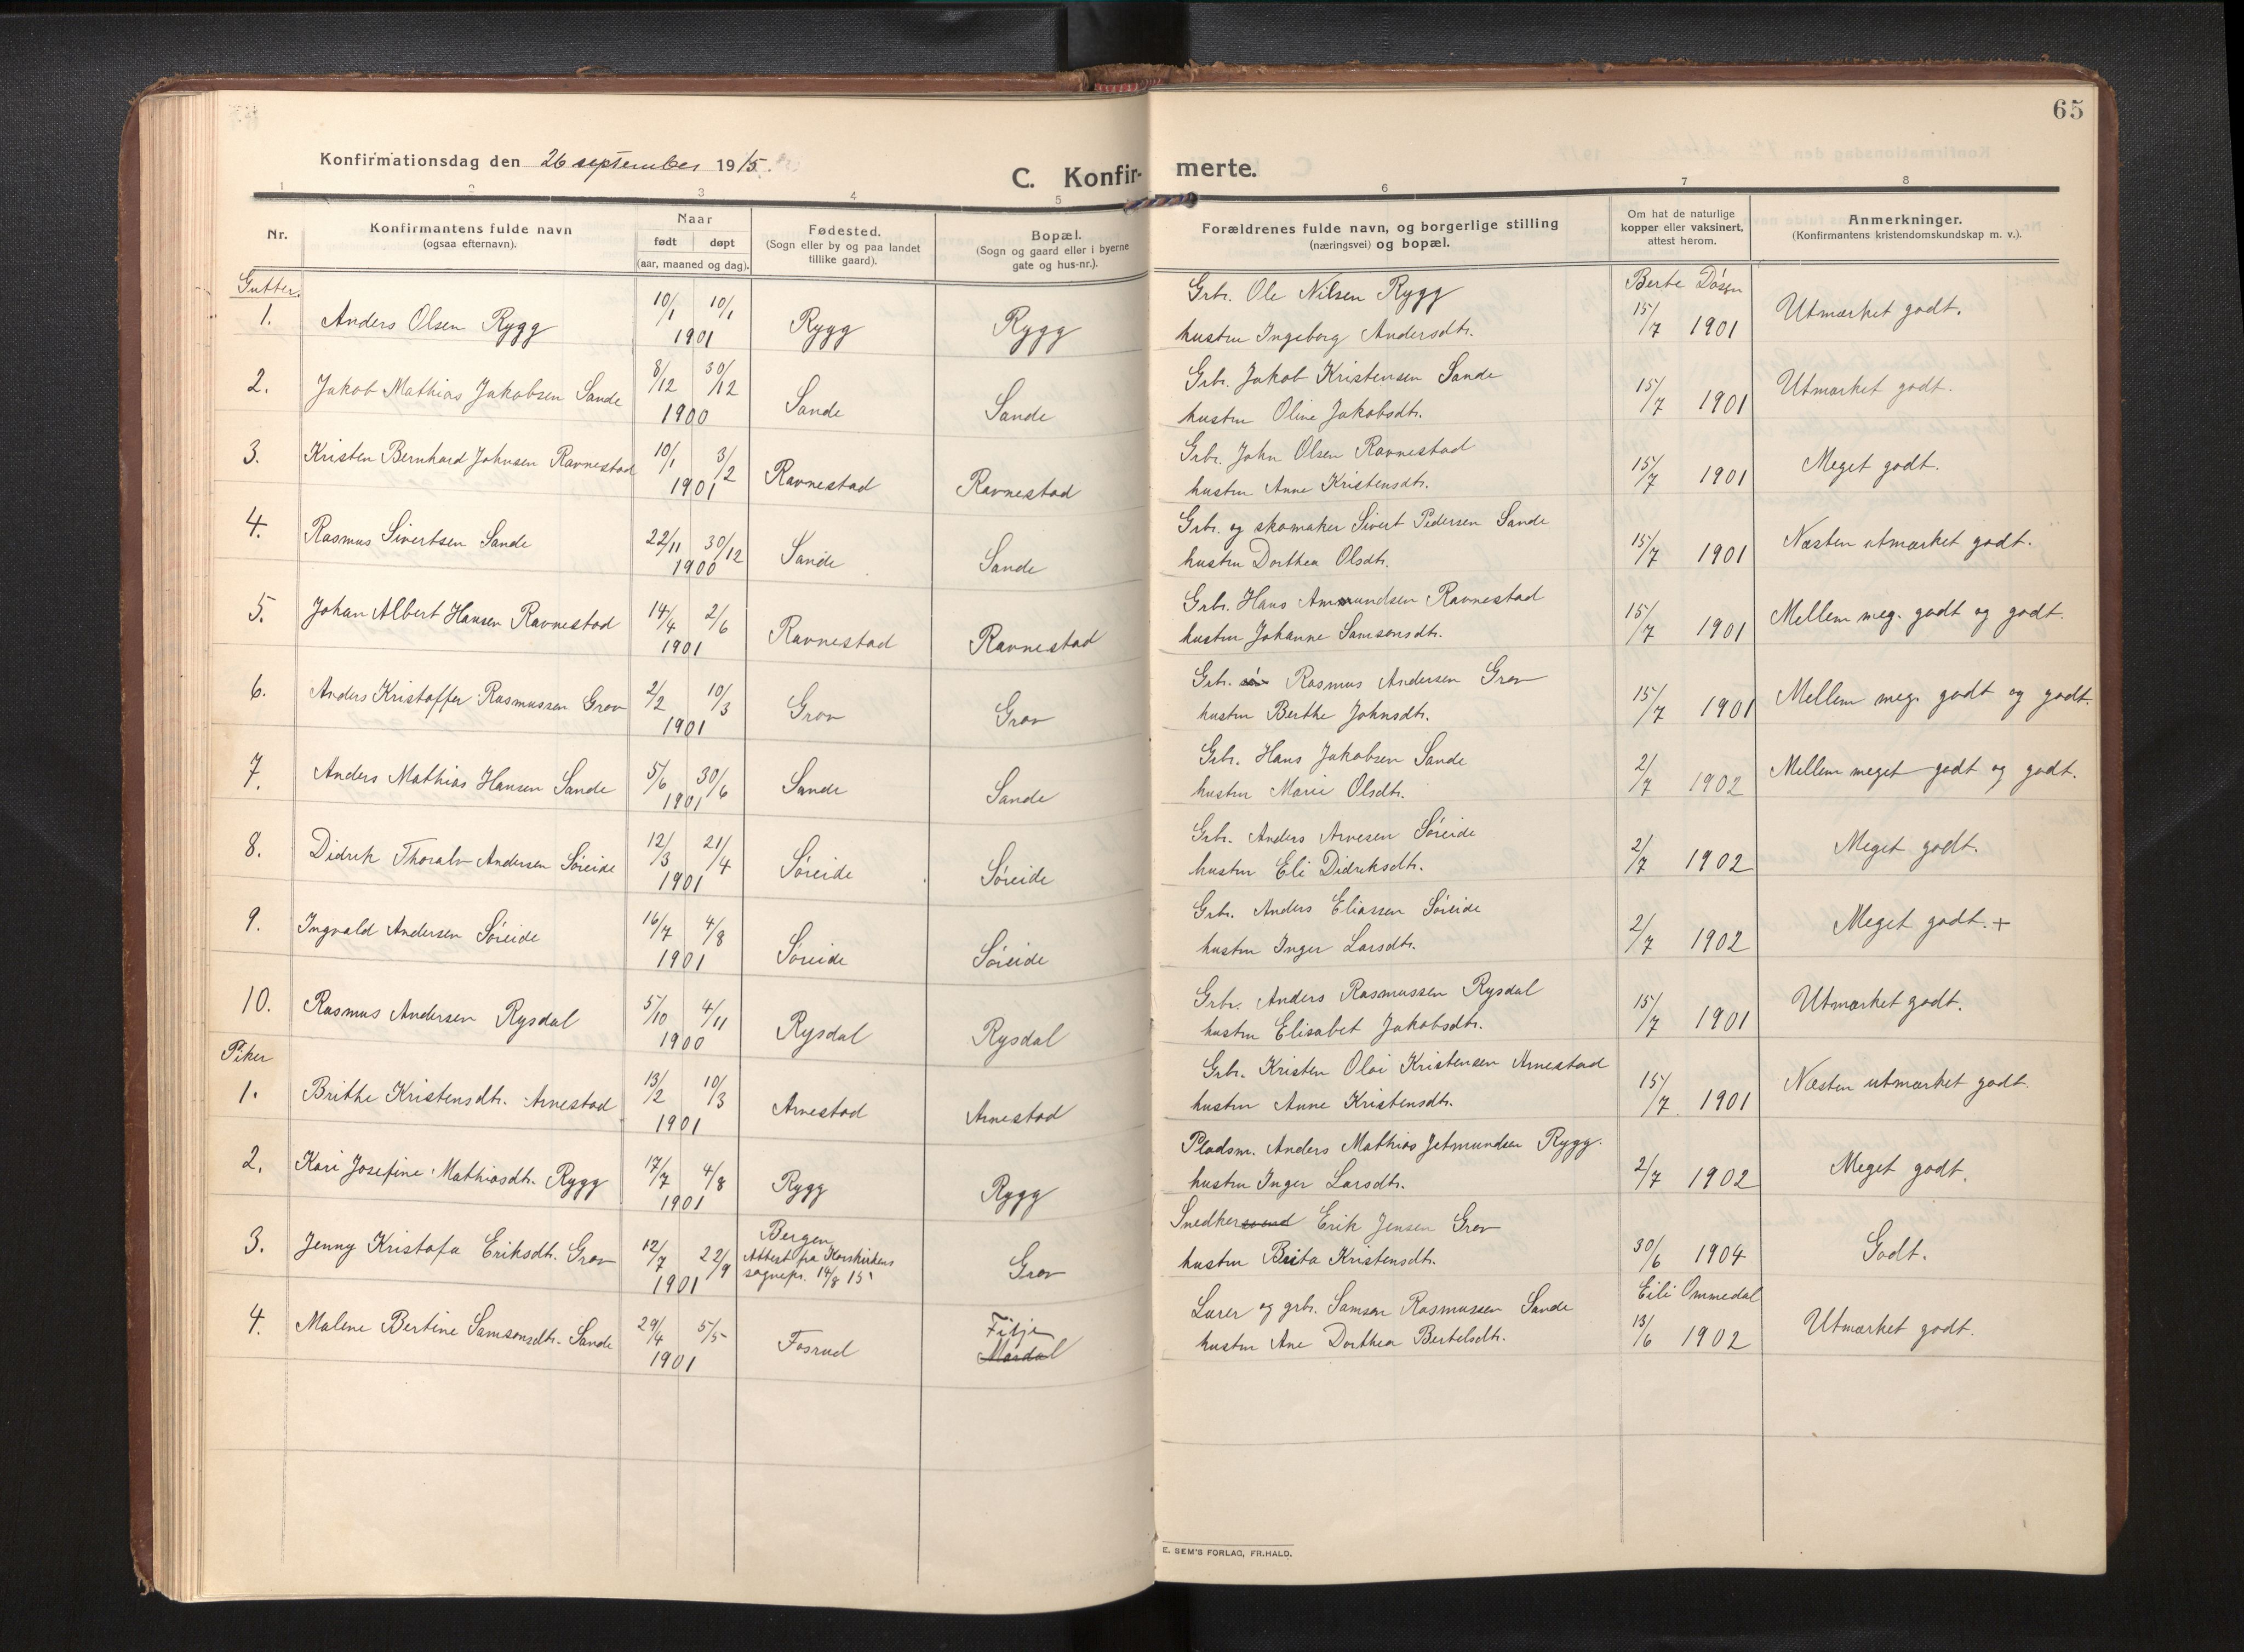 65
Konfirmationsdag den 26 september 1915.
C. Konfir- merte.
1 2 3 4 5 6 7 8
Nr.
Konfirmantens fulde navn
(ogsaa efternavn).
Naar
født døpt
(aar, maaned og dag).
Fødested.
(Sogn eller by og paa landet
tillike gaard).
Bopæl.
(Sogn og gaard eller i byerne
gate og hus-nr.).
Forældrenes fulde navn, og borgerlige stilling
(næringsvei) og bopæl.
Om hat de naturlige
kopper eller vaksinert,
attest herom.
Anmerkninger.
(Konfirmantens kristendomskundskap m. v.).
Gutter.
1. Anders Olsen Rygg 10/1 10/1 1901 Rygg Rygg
Grbr. Ole Nilsen Rygg
hustru Ingeborg Andersdtr.
Berte Døsen
15/7 1901 Utmærket godt.
2. Jakob Mathias Jakobsen Sande 8/12 30/12 1900 Sande Sande
Grbr. Jakob Kristensen Sande
hustru Oline Jakobsdtr.
15/7 1901 Utmærket godt.
3. Kristen Bernhard Johnsen Ravnestad 10/1 3/2 1901 Ravnestad Ravnestad
Grbr. John Olsen Ravnestad
hustru Anne Kristensdtr.
15/7 1901 Meget godt.
4. Rasmus Sivertsen Sande 22/11 30/12 1900 Sande Sande
Grbr. og skomaker Sivert Pedersen Sande
hustru Dorthea Olsdtr.
15/7 1901 Næsten utmærket godt.
5. Johan Albert Hansen Ravnestad 14/4 2/6 1901 Ravnestad Ravnestad
Grbr. Hans Ammundsen Ravnestad
hustru Johanne Samsonsdtr.
15/7 1901 Mellem meg. godt og godt.
6. Anders Kristoffer Rasmussen Grov 2/2 10/3 1901 Grov Grov
Grbr. Rasmus Andersen Grov
hustru Berthe Johnsdtr.
15/7 1901 Mellem meg. godt og godt.
7. Anders Mathias Hansen Sande 5/6 30/6 1901 Sande Sande
Grbr. Hans Jakobsen Sande
hustru Marie Olsdtr.
2/7 1902 Mellem meget godt og godt.
8. Didrik Thoralv Andersen Søreide 12/3 21/4 1901 Søreide Søreide
Grbr. Anders Arnesen Søreide
hustru Eli Didriksdtr.
2/7 1902 Meget godt.
9. Ingvald Andersen Søreide 16/7 4/8 1901 Søreide Søreide
Grbr. Anders Eliassen Søreide
hustru Inger Larsdtr.
2/7 1902 Meget godt. +
10. Rasmus Andersen Rysdal 5/10 4/11 1900 Rysdal Rysdal
Grbr. Anders Rasmussen Rysdal
hustru Elisabet Jakobsdtr.
15/7 1901 Utmærket godt.
Piker
1. Brithe Kristensdtr. Arnestad 13/2 10/3 1901 Arnestad Arnestad
Grbr. Kristen Olai Kristensen Arnestad
hustru Anne Kristensdtr.
15/7 1901 Næsten utmærket godt.
2. Kari Josefine Mathiasdtr. Rygg 17/7 4/8 1901 Rygg Rygg
Pladsm. Anders Mathias Jetmundsen Rygg.
hustru Inger Larsdtr.
2/7 1902 Meget godt.
3. Jenny Kristofa Eriksdtr. Grov 12/7 22/9 1901
Bergen
Attest fra Korskirkens
sognepr. 14/8 15
Grov
Snedkersvend Erik Jensen Grov
hustru Brita Kristensdtr.
30/6 1904 Godt.
4. Malene Bertine Samsonsdtr. Sande 29/4 5/5 1901 Fosrud
Fitje
Mardal
Lærer og grbr. Samson Rasmussen Sande
hustru Ane Dorthea Bertelsdtr.
Eili Ommedal
13/6 1902 Utmærket godt.
E. SEM'S FORLAG, FR.HALD.